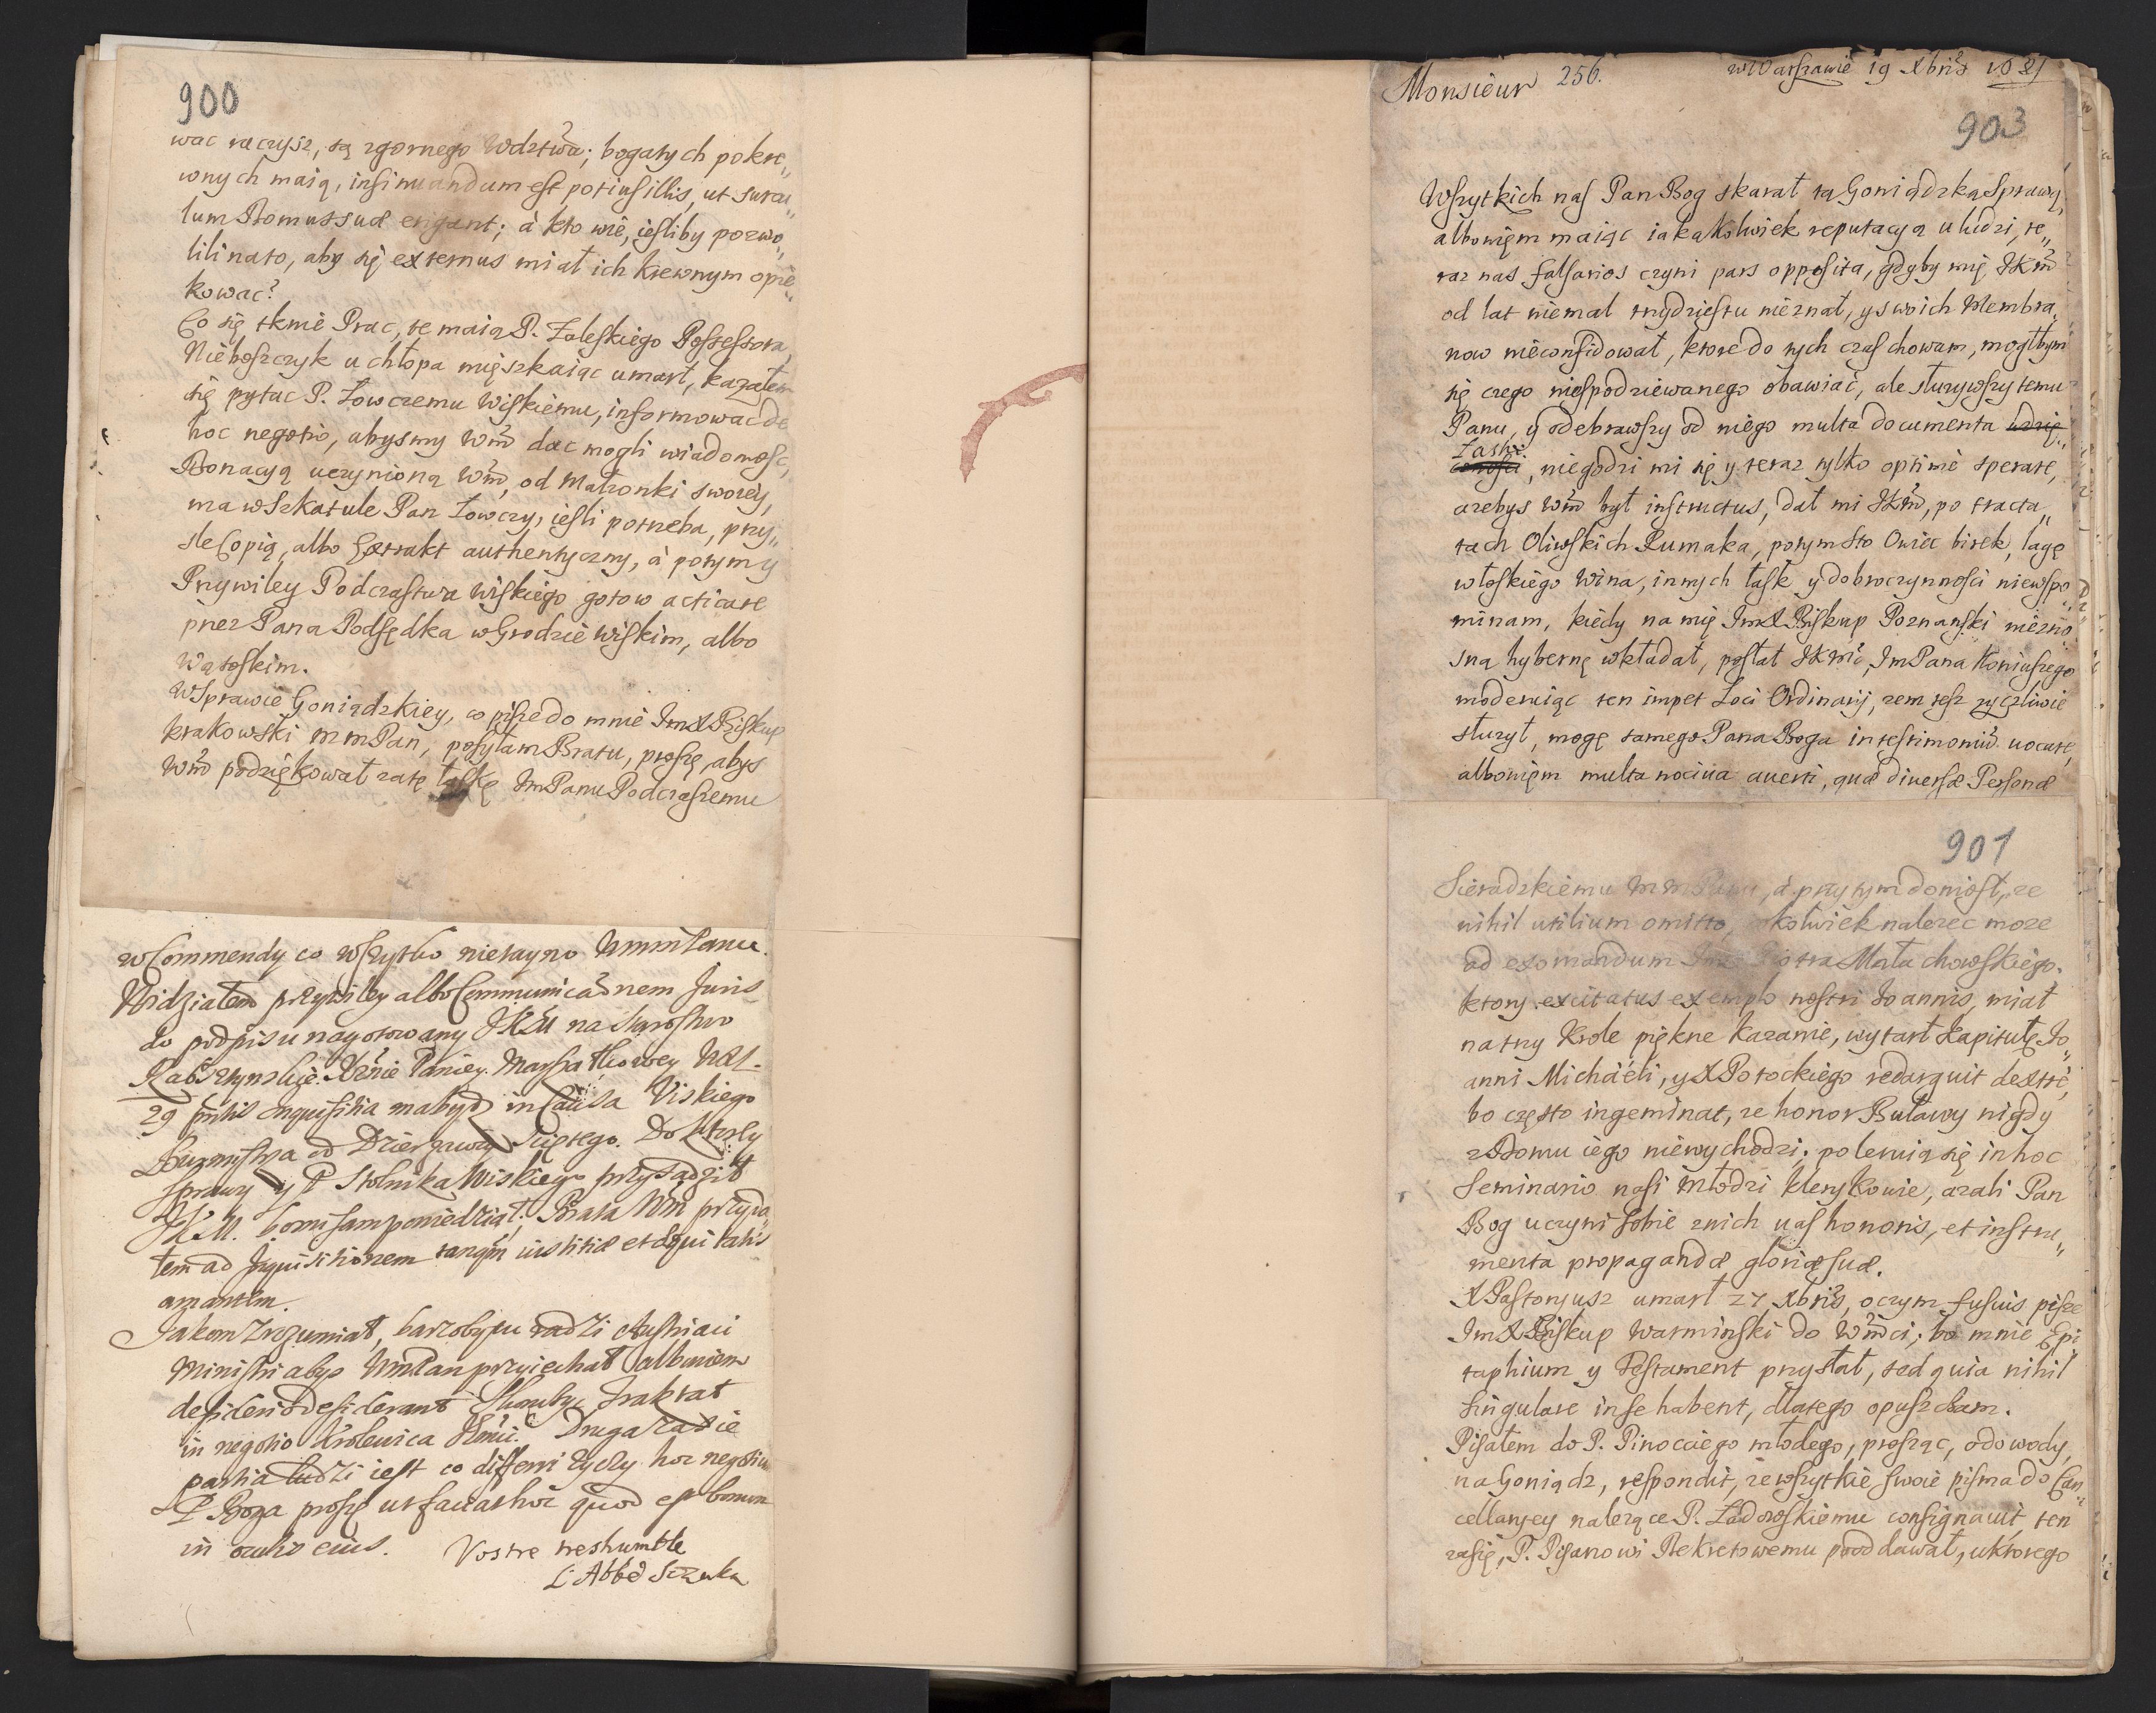 900
wac raczysz, są zgornego Wdztwa; bogatych pokre„
wnych maią, insinuandum est potius illis, ut surcu„
lum Domus suæ erigant; à kto wie, iesliby pozwo„
lili na to, aby się externus miał ich krewnym opie„
kowac?
Co się tknie Prac, te maią P. Zaleskiego Possessora,
Nieboszczyk u chłopa mięszkaiąc umarł, kazałem
się pytac P. Łowczemu Wiskiemu, informowac de
hoc negotio, abysmy Wmć dac mogli wiadomosc,
Donacyą uczynioną Wmć, od Małzonki swoiey,
ma w Szkatule Pan Łowczy, iesli potrzeba, przy„
sle Copią, albo Extrakt authentyczny, à potym y
Przywiley Podczastwa Wiskiego gotow acticare
przez Pana Podsędka w Grodzie Wiskim, albo
Wąsoskim.
W Sprawie Goniądzkiey, co pisze do mnie Jm X Biskup
krakowski m m Pan, posyłam Bratu, proszę, abys
Wmć podziękował za tę łaskę Jm Panu Podczaszemu
w Commendy co wszytko nie tayno Wmm Panu.
Widziałem przywiley albo Communicaōnem Juris
do podpisu nagotowany JKM na Starostwo
Rabsztynskie Xżnie Paniey Marszałkowey WXL.
29 pntis inquisitia ma bydz in Causa Viskiego
Burmistrza od Dzierzawcy Sciętego. Do tey
sprawy y P Stolnika Wiskiego przysądził
JKM. bo mi sam powiedział; Brata Wm przyda„
łem ad Inquisitionem tanqm iustitiæ et æquitatis
amantem.
Jakom zrozumiał, barzoby tu radzi Austriaci
Ministri abys Wm Pan przyiechał albowiem
desiderio desiderant Skonczyc Traktat
in negotio Krolewica Jmći. Druga zasie
partia ludzi iest co differri zyczy hoc negotium
P Boga proszę ut faciat hoc quod est bonum
in oculis eius. Vostre treshumble
L'Abbé Szczuka
Monsieur 256. w Warszawie 19 Xbris 1681
903
Wszytkich nas Pan Bog skarał tą Goniądzką Sprawą,
albowięm maiąc iakakolwiek reputacyą u ludzi, te„
raz nas falsarios czyni pars opposita, gdyby mię JKmć
od lat niemal trzydziestu nieznał, y swoich Membra„
now nieconfidował, ktore do tych czas chowam, mogłbym
się czego niespodziewanego obawiać, ale służywszy temu
Panu, y odebrawszy od niego multa documenta
Łaski, niegodzi mi się y teraz tylko optimè sperare,
azebys Wmć był instructus, dał mi JKmć, po tracta„
tach Oliwskich Rumaka, potym sto Owiec birek, lagę
włoskiego Wina, innych łask y dobroczynnosci niewspo„
minam, kiedy na mię Jm X Biskup Poznanski niezno„
sną hybernę wkładał, posłał JKmć, Jm Pana Koniuszego
moderuiąc ten impet Loci Ordinarij, zem tesz zyczliwie
służył, mogę samego Pana Boga in testimoniũ uocare,
albowięm multa nociua auerti, quæ diuersæ Personæ
901
Sieradzkiemu m m Panu, à przytym doniosł, ze
nihil utilium omitto, kolwiek nalezec moze
ad exornandum Piotra Małachowskiego.
ktory excitatus exemplo nostri Joannis, miał
na trzy Krole piękne kazanie, wytarł Kapitułę Jo„
anni Michaëli, y X Potockiego redarguit dextrè,
bo często ingeminat, ze honor Buławy nigdy
z Domu iego niewychodzi; poleruią się in hoc
Seminario nasi młodzi klerykowie, azali Pan
Bog uczyni sobie z nich uas honoris, et instru„
menta propagandæ gloriæ suæ.
X Pastoryusz umarł 27 Xbris, o czym fusius pisze
Jm X Biskup Warminski do Wmći; bo mnie Epi„
taphium y Testament przysłał, sed quia nihil
singulare in se habent, dlatego opuszcham.
Pisałem do P. Pinocciego młodego, prosząc, o dowody,
na Goniądz, respondit, ze wszytkie swoie pisma do Can„
cellaryey nalezące P. Ładowskiemu consignauit, ten
zasię, P. Pisarzowi Dekretowemu pooddawał, u ktorego